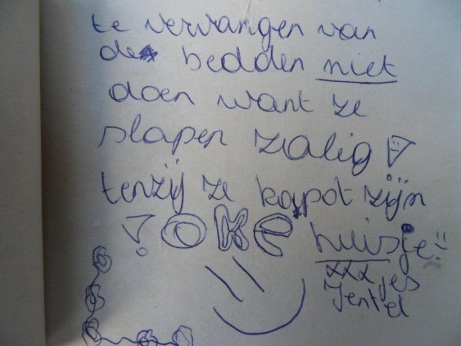 te vervangen van
de bedden niet
doen want ze
slapen zalig!
tenzij ze kapot zijn
! OKé huisje
xxxjes
Jentel